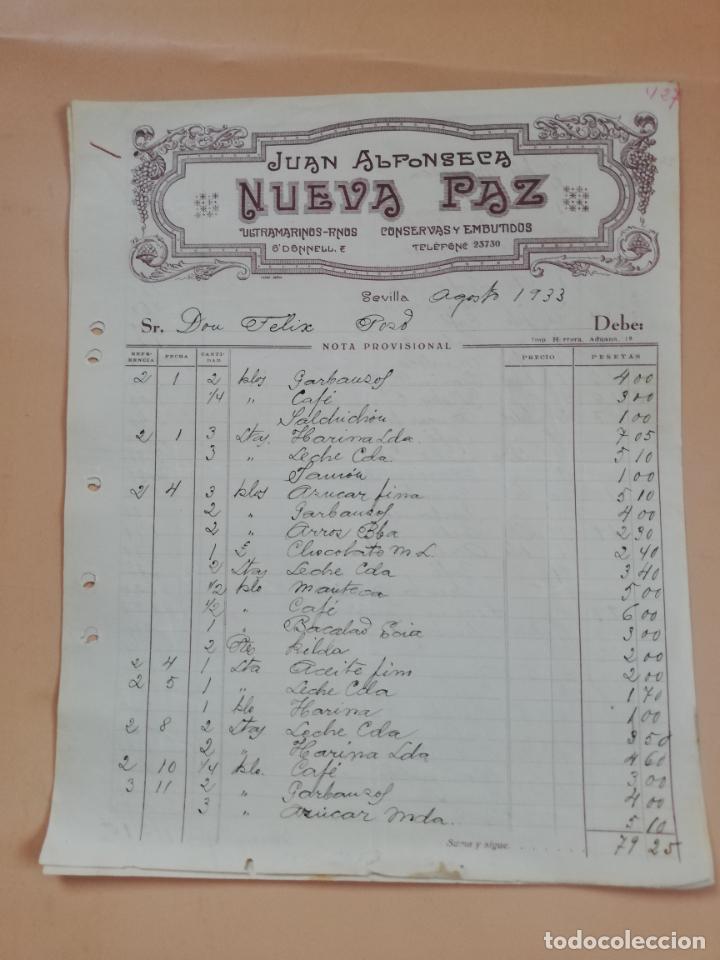 427
JUAN ALFONSECA
NUEVA PAZ
ULTRAMARINOS-FINOS CONSERVAS Y EMBUTIDOS
O'DONNELL, 7 TELÉFONO 23730
Sevilla Agosto 1933
Sr. Don Felix Debe:
Imp. Herrera, Aduana, 19
NOTA PROVISIONAL
REFERENCIA FECHA CANTIDAD PRECIO PESETAS
2 1 2 klos Garbansos 4 00
1/4 " Café 3 00
Salchichón 1 00
2 1 3 Ltas Harina Lda. 7 05
3 " Leche Cda 5 10
Jamón 1 00
2 4 3 klos Azucar fina 5 10
2 " Garbansos 4 00
2 " Arros Bba 2 30
1 £ Chocolate M L. 2 40
2 Ltas Leche Cda 3 40
1/2 klo Manteca 5 00
1/2 " Café 6 00
1 " Bacalao 3 00
2 Ptes kilda 2 00
2 4 1 Lta Aceite fino 2 00
2 5 1 " Leche Cda 1 70
1 klo Harina 1 00
2 8 2 Ltas Leche Cda 3 50
2 " Harina Lda 4 60
2 10 1/4 klo. Café 3 00
3 11 2 " Garbansos 4 00
3 " Azúcar mda. 5 10
Suma y sigue. 79 25
todocoleccion
todocoleccion.net